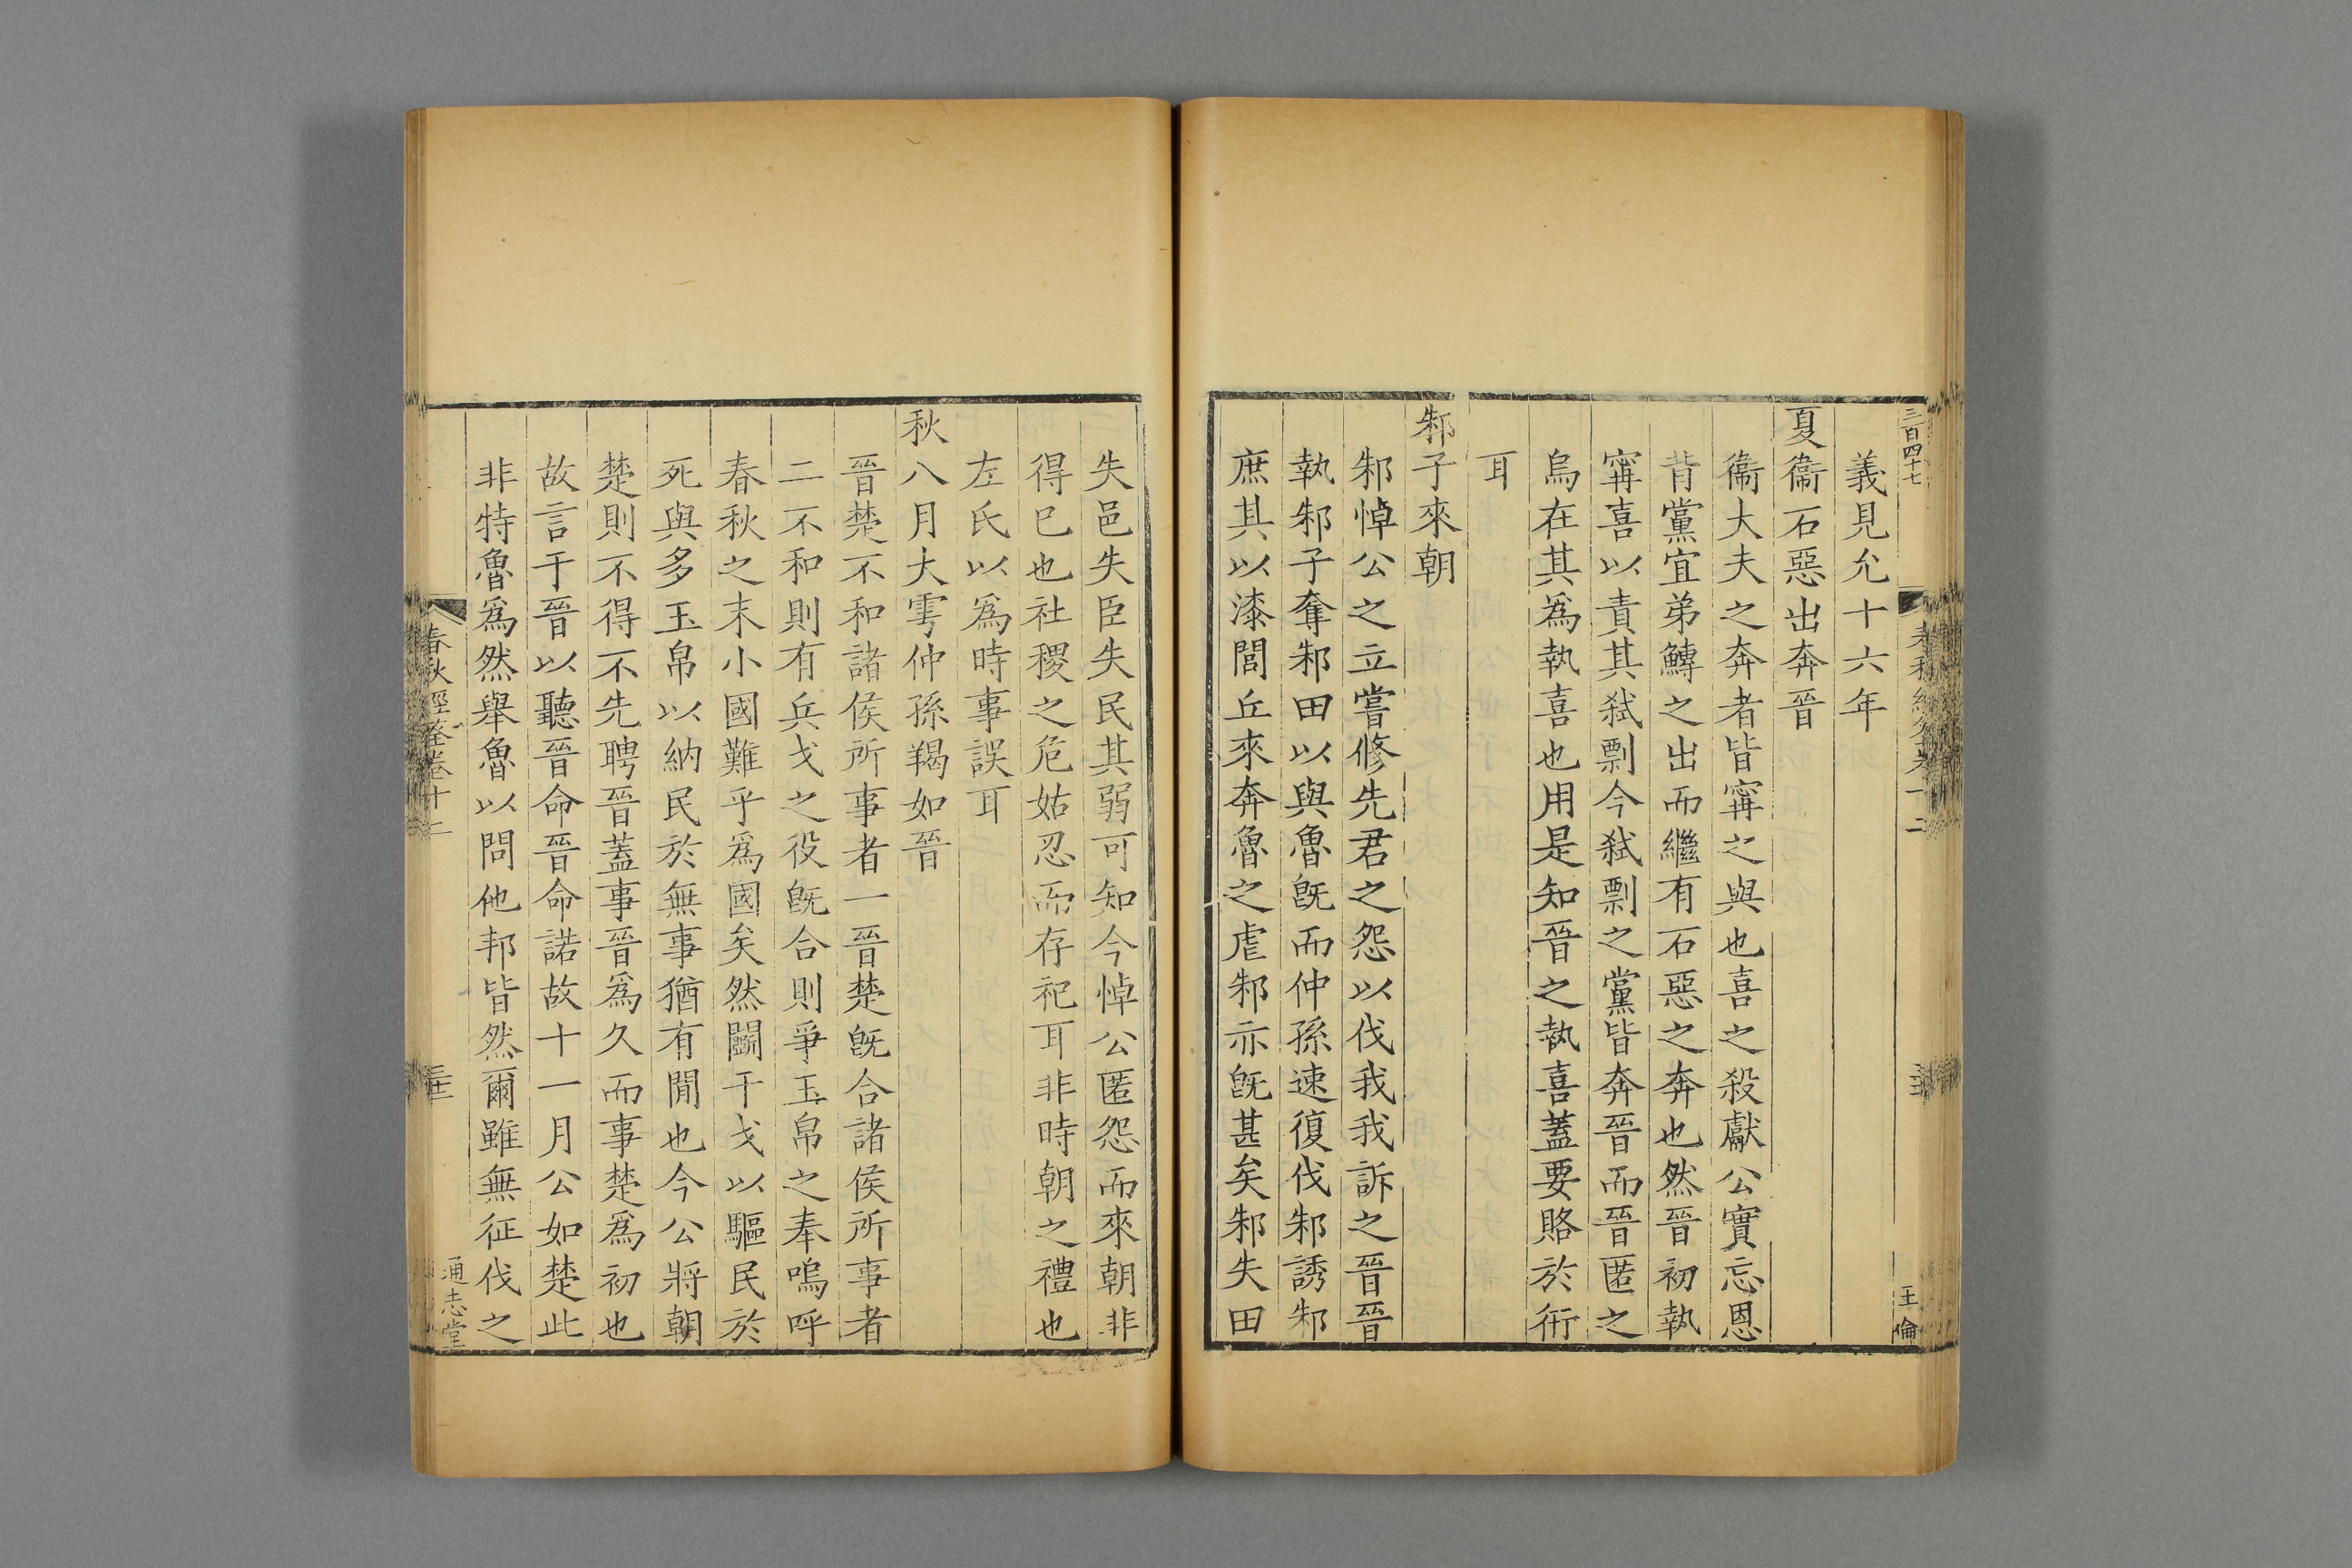 三百四十七
王倫
義見允十六年
夏衞石惡出奔晉
衞大夫之奔者皆甯之與也喜之殺獻公實忘恩
背黨宜弟鱄之出而繼有石惡之奔也然晉初執
甯喜以責其弒剽今弒剽之黨皆奔晉而晉匿之
烏在其爲執喜也用是知晉之執喜蓋要賂於衎
耳
邾子來朝
邾悼公之立嘗修先君之怨以伐我我訴之晉晉
執邾子奪邾田以與魯旣而仲孫速復伐邾誘邾
庶其以漆閭丘來奔魯之虐邾亦旣甚矣邾失田
失邑失臣失民其弱可知今悼公匿怨而來朝非
得巳也社稷之危姑忍而存祀耳非時朝之禮也
左氏以爲時事誤耳
秋八月大雩仲孫羯如晉
晉楚不和諸侯所事者一晉楚旣合諸侯所事者
二不和則有兵戈之役旣合則爭玉帛之奉嗚呼
春秋之末小國難乎爲國矣然鬭干戈以驅民於
死與多玉帛以納民於無事猶有閒也今公將朝
楚則不得不先聘晉蓋事晉爲久而事楚爲初也
故言于晉以聽晉命晉命諾故十一月公如楚此
非特魯爲然舉魯以問他邦皆然爾雖無征伐之
春秋經筌卷十二
通志堂